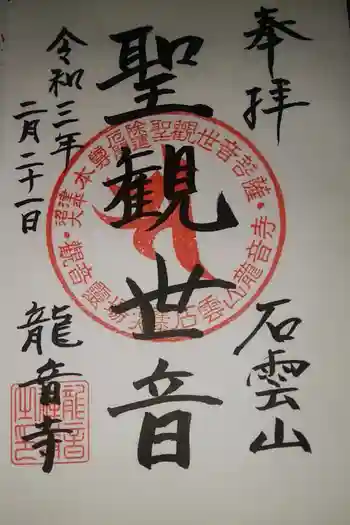 奉拝
石雲山
聖観世音
令和三年
二月二十一日
龍音寺
本尊厄除聖観世音菩薩
石雲山龍音寺